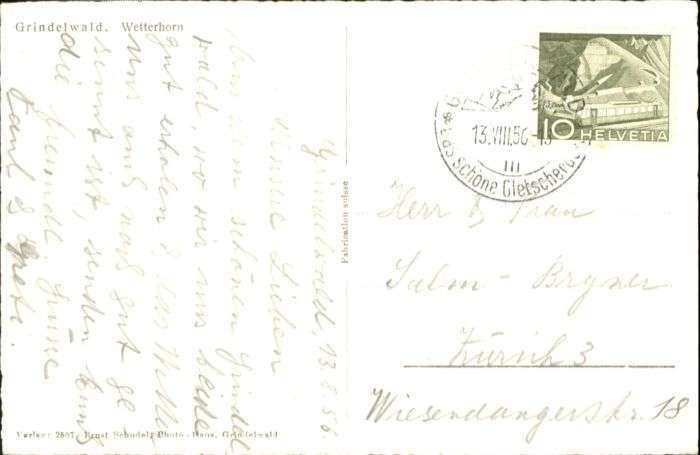 Grindelwald. Wetterhorn
Grindelwald, 13.8.56.
meine Lieben
Aus dem schönen Grindel
wald, wo wir uns beide
gut erholen & das Wetter
uns auch noch gut ge
sinnt ist, senden Euch
die freundl. Grüsse
Paul & Greti.
Fabrication suisse
HELVETIA
10
13.VIII.56
Das schöne Gletscherdorf
Herr & Frau
Salm - Bryner
Zürich 3
Wiesendangerstr. 18
Verlag 2807. Ernst Schudel, Photo-Haus, Grindelwald